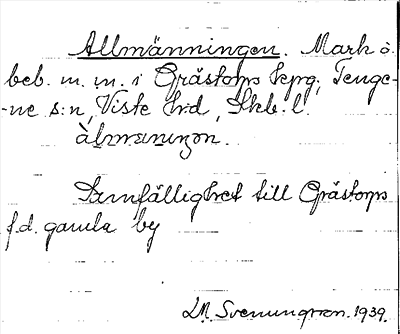 Allmänningen. Mark o.
beb. m. m. i Grästorps kpg, Tenge-
-ne s:n, Viste h:d, Skb. l.
àlmæniŋən.
Samfällighet till Grästorps
f.d. gamla by
D.A. Svenungsson. 1939.